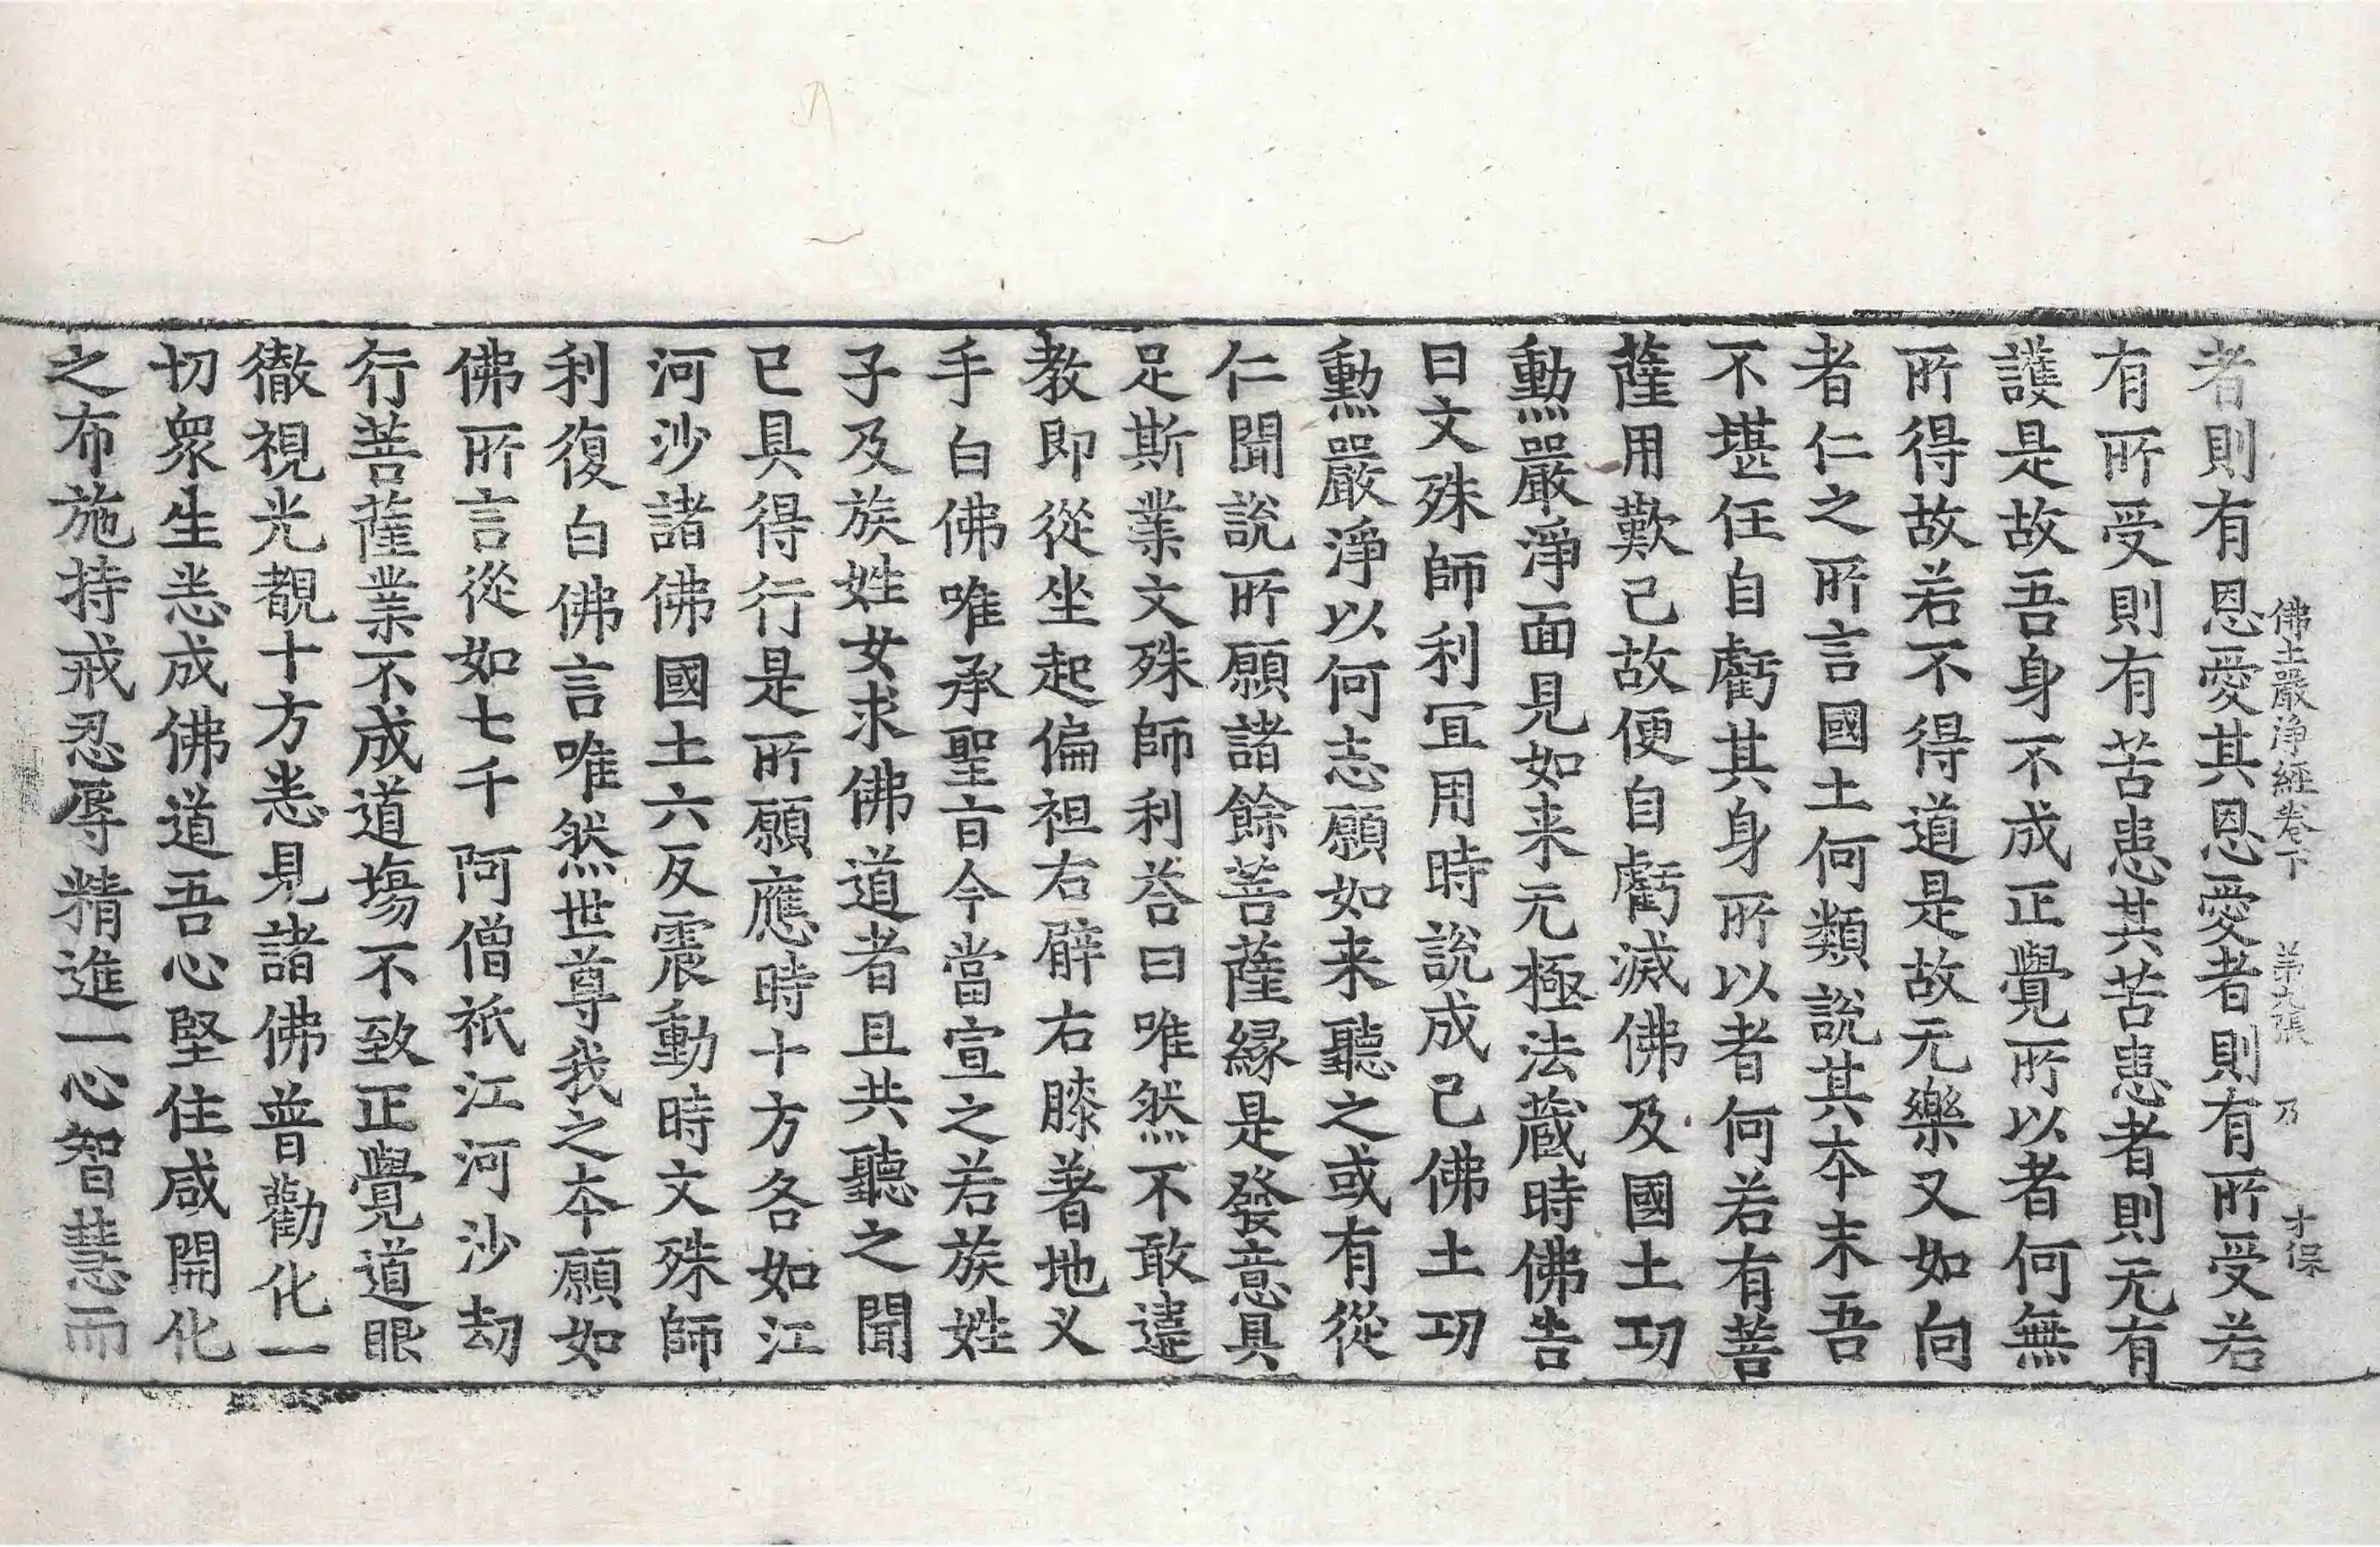 佛土嚴淨經卷下 第九張 乃 才保
者則有恩愛其恩愛者則有所受若
有所受則有苦患其苦患者則无有
護是故吾身不成正覺所以者何無
所得故若不得道是故无樂又如向
者仁之所言國土何類說其本末吾
不堪任自虧其身所以者何若有菩
薩用歎己故便自虧滅佛及國土功
勳嚴淨面見如来元極法蔵時佛告
曰文殊師利冝用時說成己佛土功
勳嚴淨以何志願如来聽之或有從
仁聞說所願諸餘菩薩緣是發意具
足斯業文殊師利荅曰唯然不敢違
教即從坐起偏袒右臂右膝著地义
手白佛唯承聖旨今當宣之若族姓
子及族姓女求佛道者且共聽之聞
已具得行是所願應時十方各如江
河沙諸佛國土六反震動時文殊師
利復白佛言唯然世尊我之本願如
佛所言從如七千阿僧祇江河沙劫
行菩薩業不成道塲不致正覺道眼
徹視光覩十方悉見諸佛普勸化一
切衆生悉成佛道吾心堅住咸開化
之布施持戒忍辱精進一心智慧而